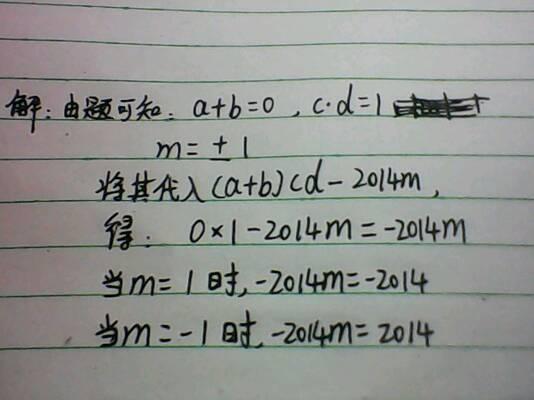 解:由题可知:a+b=0,c·d=1
m=±1
将其代入(a+b)cd-2014m,
得: 0×1-2014m=-2014m
当m=1时,-2014m=-2014
当m=-1时,-2014m=2014